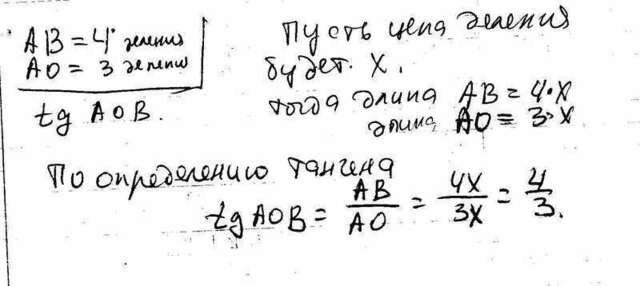 AB = 4 деления
AO = 3 деления
tg AOB.
Пусть цена деления
будет X.
тогда длина AB = 4·X
длина AO = 3·X
По определению тангена
tg AOB = AB/AO = 4X/3X = 4/3.